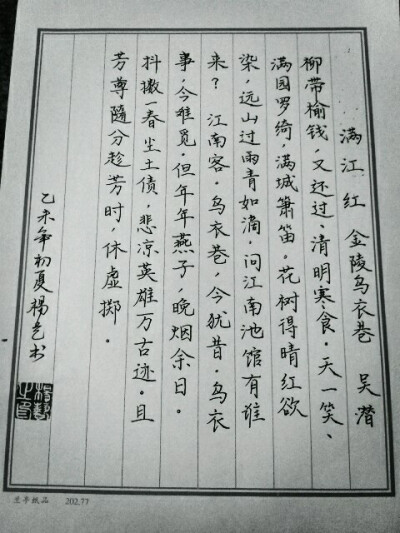 满江红 金陵乌衣巷 吴潜
柳带榆钱，又还过、清明寒食。天一笑、
满园罗绮，满城箫笛。花树得晴红欲
染，远山过雨青如滴，问江南池馆有谁
来？江南客。乌衣巷，今犹昔。乌衣
事，今难觅。但年年燕子，晚烟余日。
抖擞一春尘土债，悲凉英雄万古迹。且
芳尊随分趁芳时，休虚掷。
乙未年初夏杨艺书
兰亭纸品 202.77